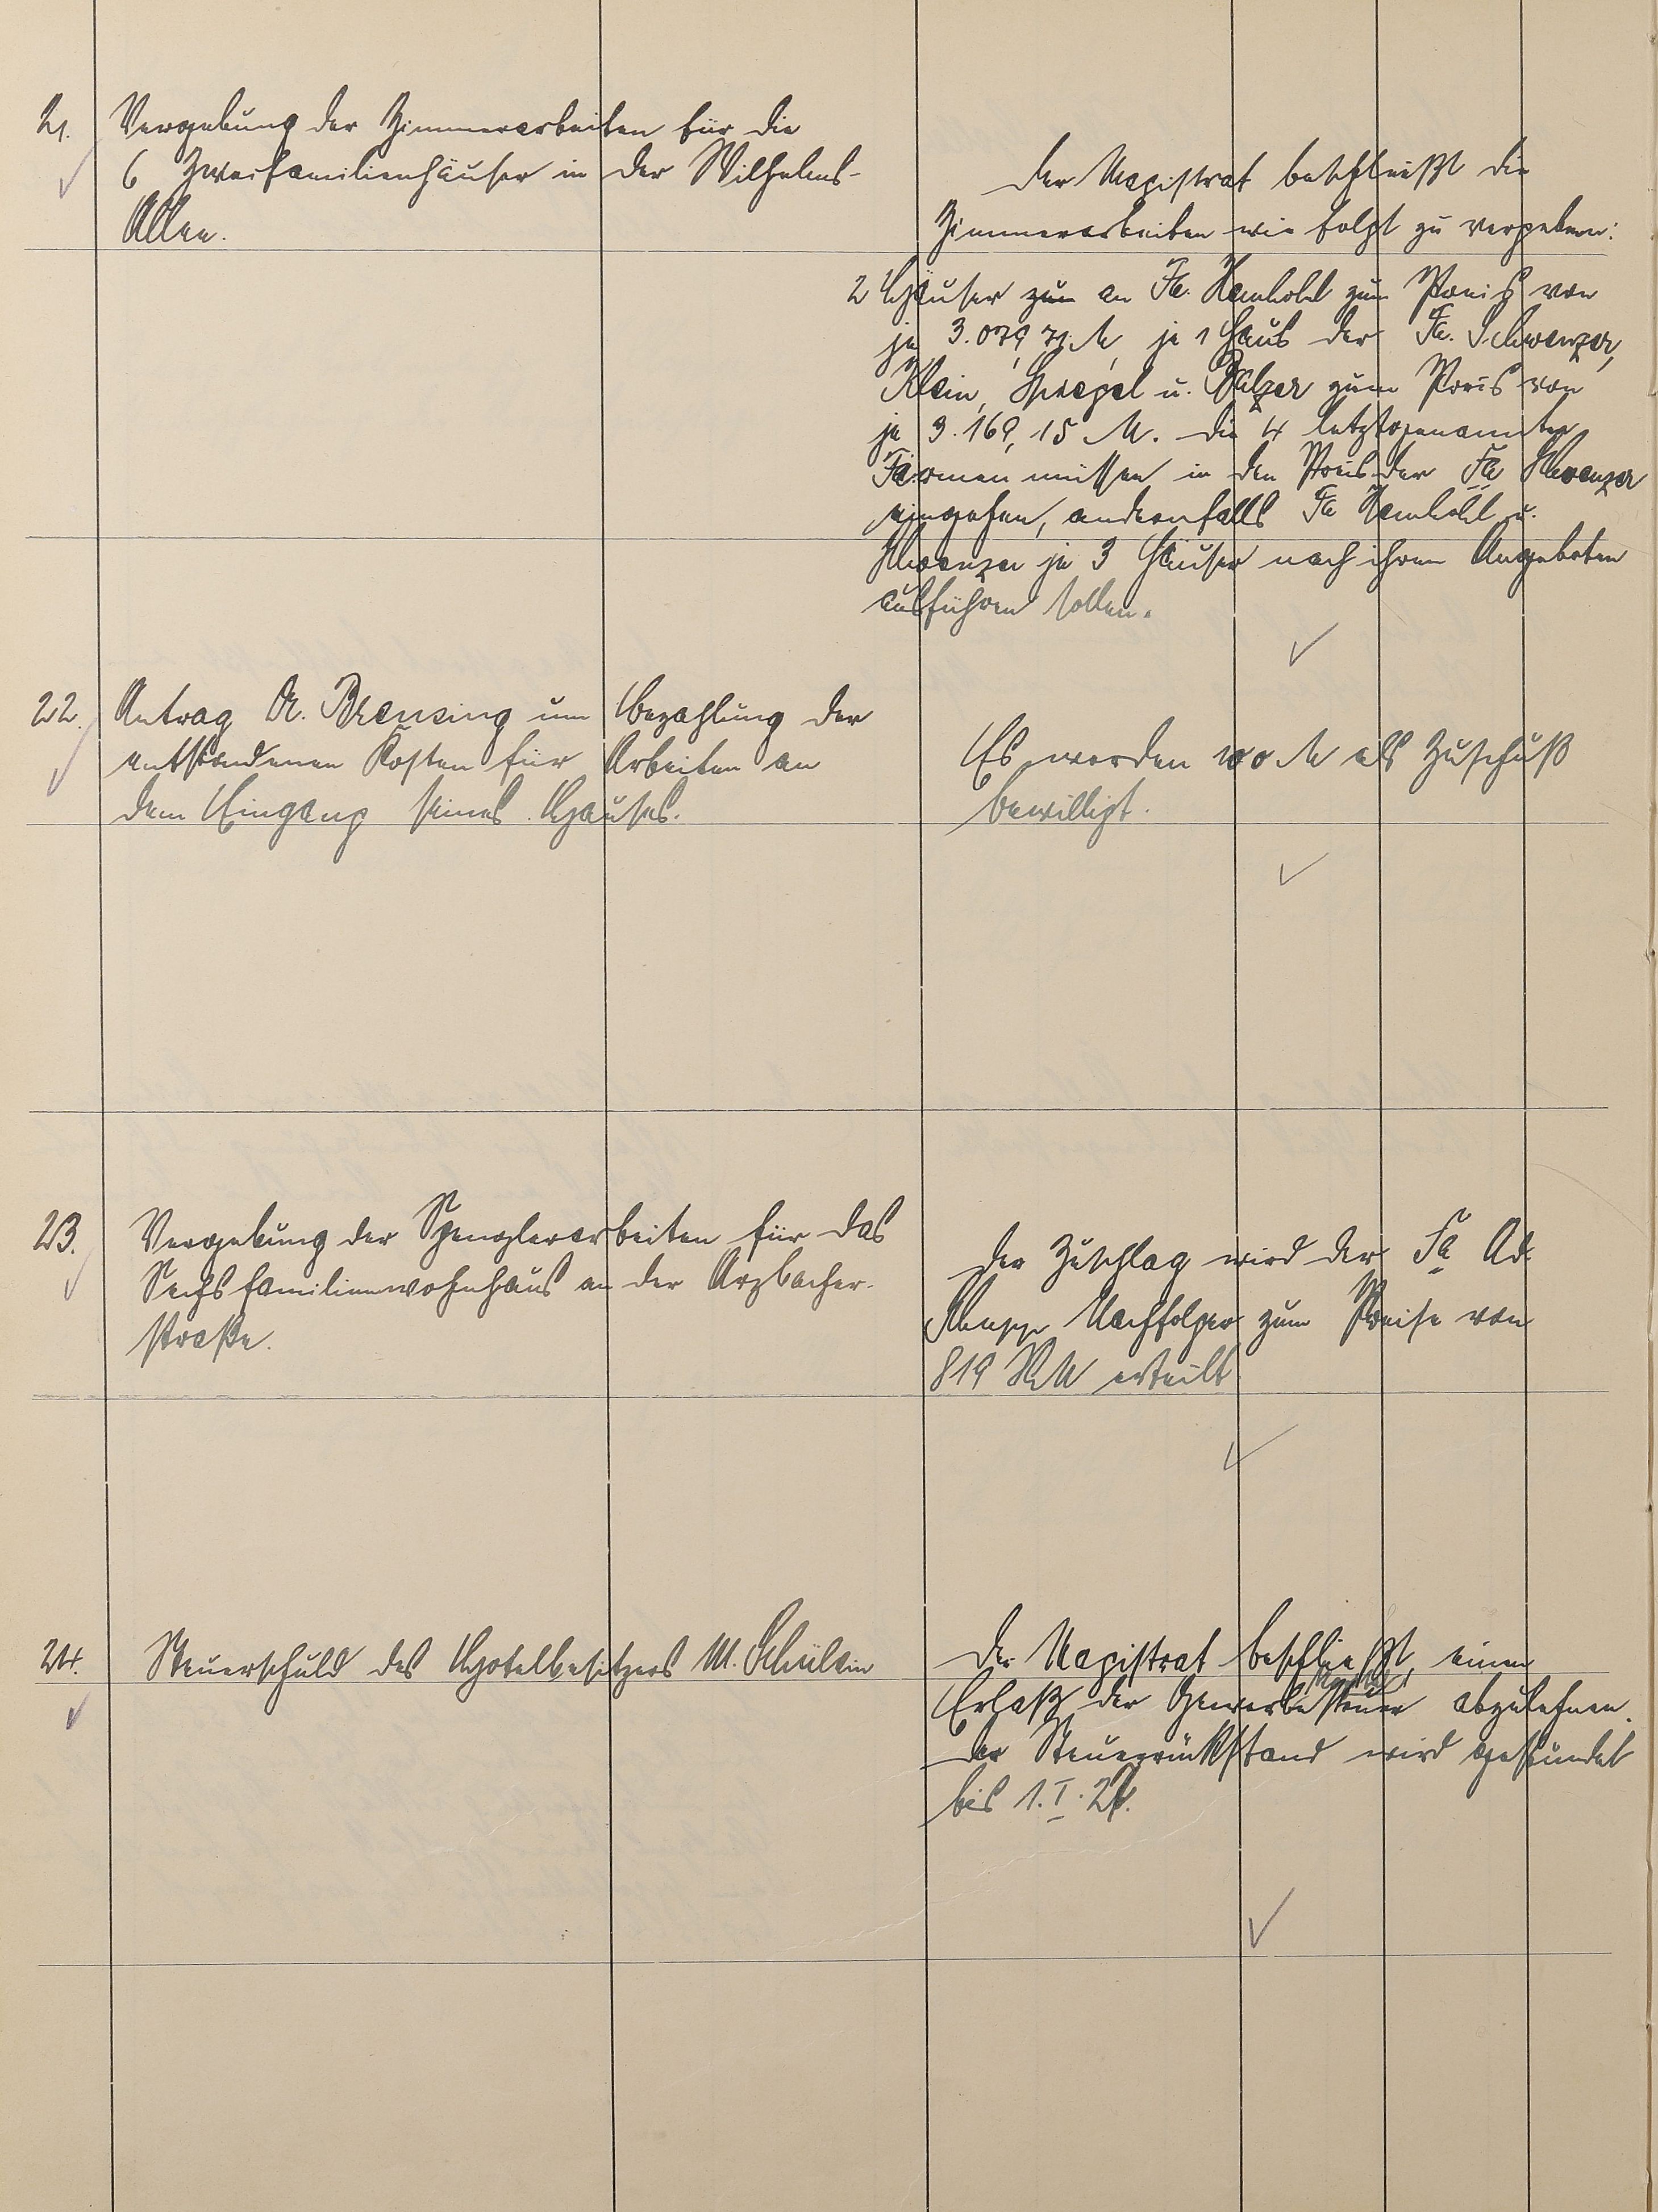 21. Vergebung der Zimmerarbeiten für die
6 Zweifamilienhäuser in der Wilhelms-
Allee.
Der Magistrat beschließt die
Zimmerarbeiten wie folgt zu vergeben:
2 Häuser zum an Fa. zum Preis von
je 3.079,71 M, je 1 Haus der Fa. Schwenzer,
Klein, Spiegel u. Balzer zum Preis von
je 3.169,15 M. Die 4 letztgenannten
Firmen müssen in den Preis der Fa Schwenzer
eingehen, andernfalls Fa u.
Schwenzer je 3 Häuser nach ihren Angeboten
ausführen sollen.
22. Antrag A. Brensing um Bezahlung der
entstandenen Kosten für Arbeiten an
dem Eingang seines Hauses.
Es werden 100 M als Zuschuß
bewilligt.
23. Vergebung der Spenglerarbeiten für das
Sechsfamilienwohnhaus an der Arzbacher-
straße.
Der Zuschlag wird der Fa Ad.
Nachfolger zum Preise von
819 RM erteilt
24. Steuerschuld des Hotelbesitzers M. Schülein
Der Magistrat beschließt, einen
Erlaß der Gewerbesteuer abzulehnen.
Der Steuerrückstand wird gestundet
bis 1.I.